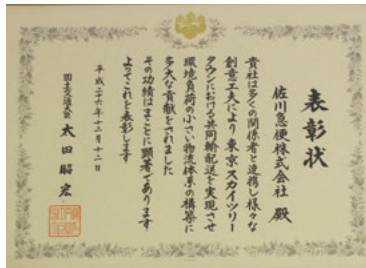 表彰状
佐川急便株式会社 殿
貴社は多くの関係者と連携し様々な
創意工夫により東京スカイツリー
タウンにおける共同輸配送を実現させ
環境負荷の小さい物流体系の構築に
多大な貢献をされました
その功績はまことに顕著であります
よってこれを表彰します
平成二十六年十二月十二日
国土交通大臣 太田昭宏